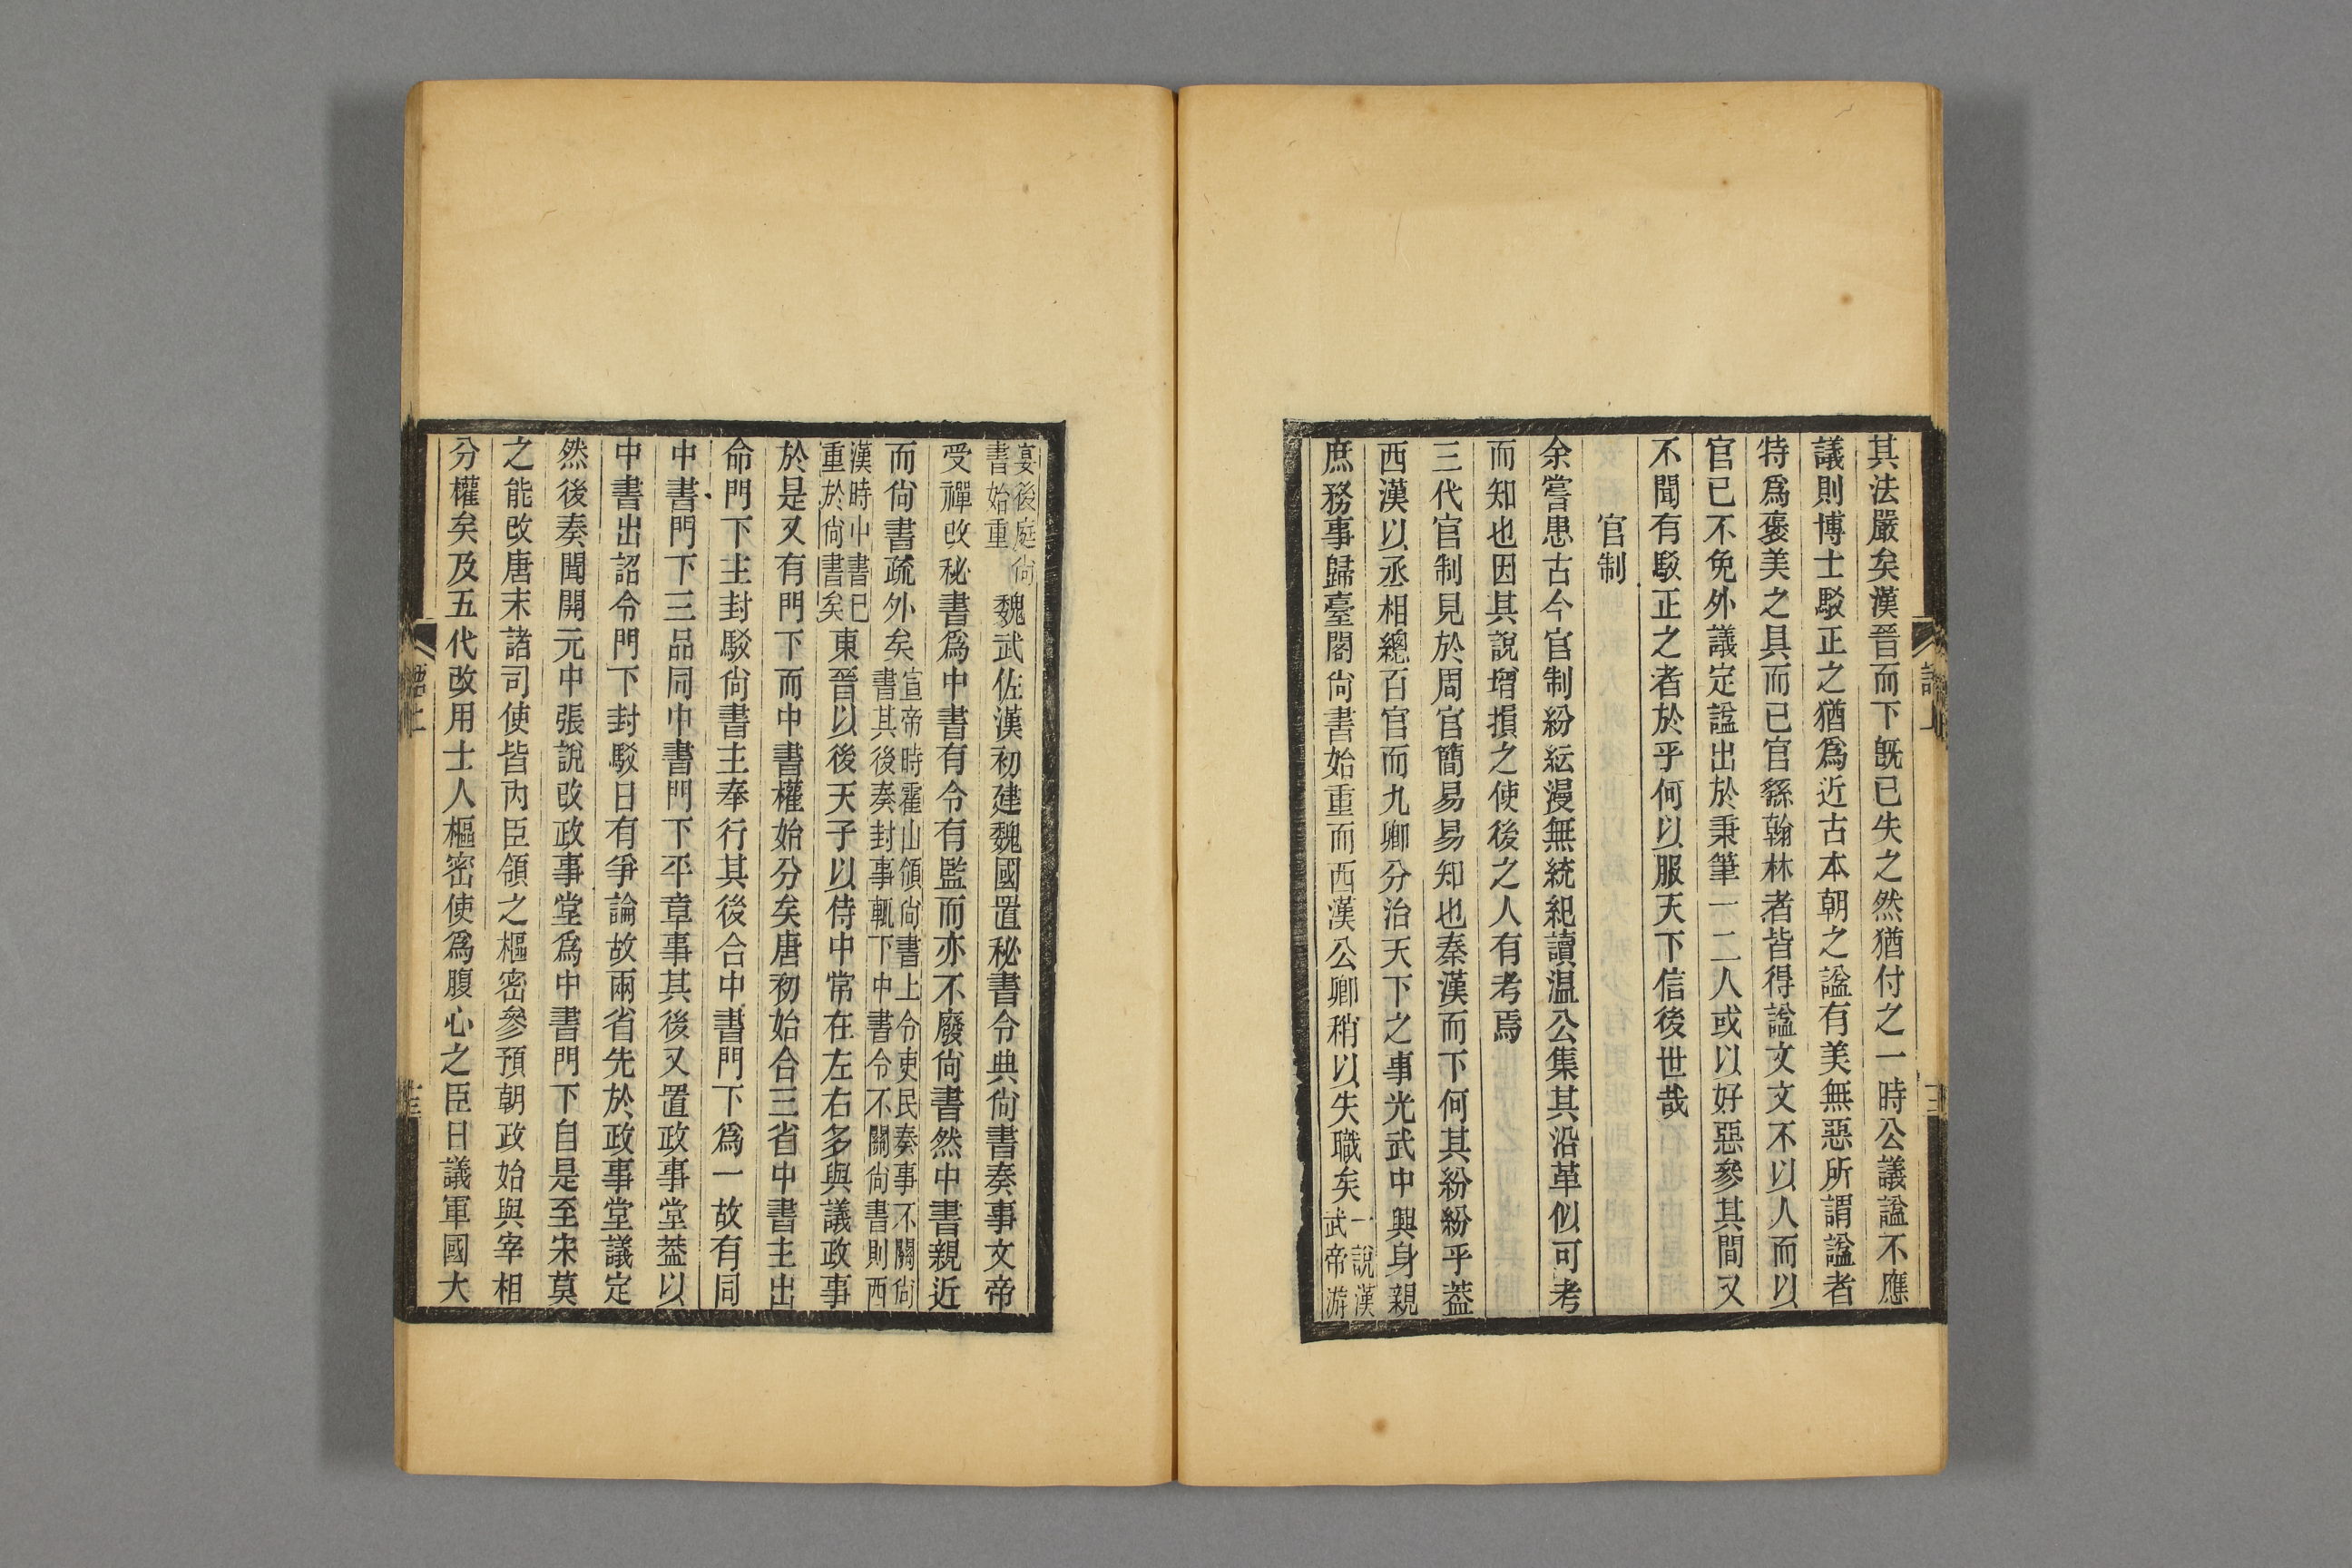 其法嚴矣漢晉而下旣已失之然猶付之一時公議諡不應
議則博士駁正之猶爲近古本朝之諡有美無惡所謂諡者
特爲褒美之具而已官繇翰林者皆得諡文文不以人而以
官已不免外議定諡出於秉筆一二人或以好惡參其間又
不聞有駁正之者於乎何以服天下信後世哉
官制
余嘗患古今官制紛紜漫無統紀讀温公集其沿革似可考
而知也因其說增損之使後之人有考焉
三代官制見於周官簡易易知也秦漢而下何其紛紛乎葢
西漢以丞相總百官而九卿分治天下之事光武中興身親
庶務事歸臺閣尙書始重而西漢公卿稍以失職矣一說漢武帝游
宴後庭尙書始重魏武佐漢初建魏國置秘書令典尙書奏事文帝
受禪改秘書爲中書有令有監而亦不廢尙書然中書親近
而尙書疏外矣宣帝時霍山領尙書上令吏民奏事不關尙書其後奏封事輒下中書令不關尙書則西
漢時中書已重於尙書矣東晉以後天子以侍中常在左右多與議政事
於是又有門下而中書權始分矣唐初始合三省中書主出
命門下主封駁尙書主奉行其後合中書門下爲一故有同
中書門下三品同中書門下平章事其後又置政事堂葢以
中書出詔令門下封駁日有爭論故兩省先於政事堂議定
然後奏聞開元中張說改政事堂爲中書門下自是至宋莫
之能改唐末諸司使皆內臣領之樞密參預朝政始與宰相
分權矣及五代改用士人樞密使爲腹心之臣日議軍國大
語上